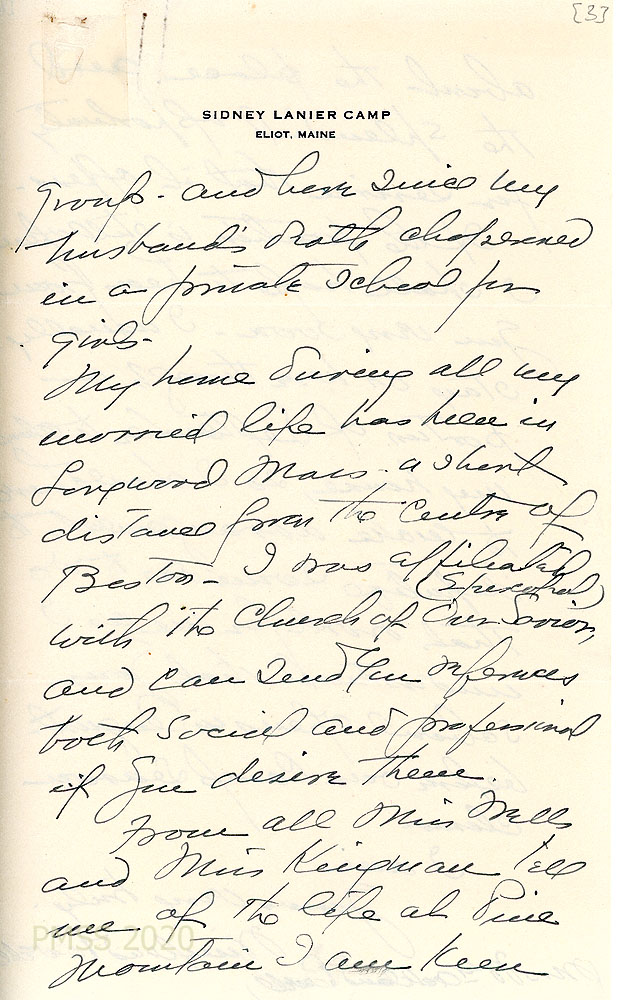 [3]
SIDNEY LANIER CAMP
ELIOT, MAINE
group - and have since my
husband's death chaperoned
in a private school for
girls -
My home during all my
married life has been in
Longwood Mass. a short
distance from the centre of
Boston - I was affiliated
(Episcopal)
with the Church of Our Savior,
and can send you references
both social and professional
if you desire them.
From all Miss Wells
and Miss Kingman tell
me of the life at Pine
Mountain I am keen
PMSS 2020